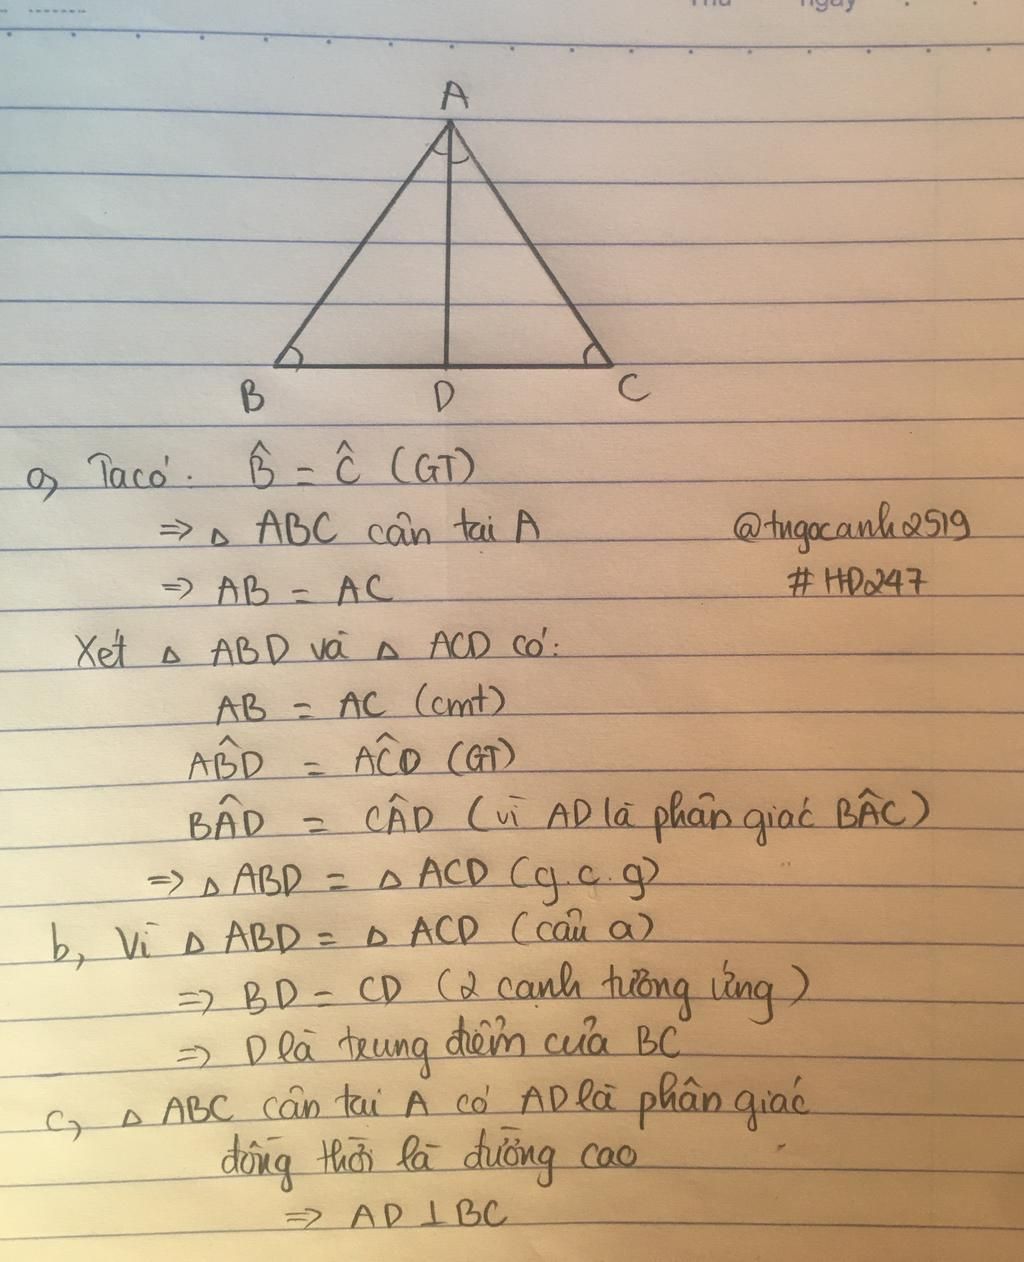 Thứ ngày
A
B D C
a, Ta có: B̂ = Ĉ (GT)
=> △ ABC cân tại A
@tngocanh2519
=> AB = AC
#HD247
Xét △ ABD và △ ACD có:
AB = AC (cmt)
AB̂D = AĈD (GT)
BÂD = CÂD (vì AD là phân giác BÂC)
=> △ ABD = △ ACD (g.c.g)
b, Vì △ ABD = △ ACD (câu a)
=> BD = CD (2 cạnh tương ứng)
=> D là trung điểm của BC
c, △ ABC cân tại A có AD là phân giác
đồng thời là đường cao
=> AD ⊥ BC